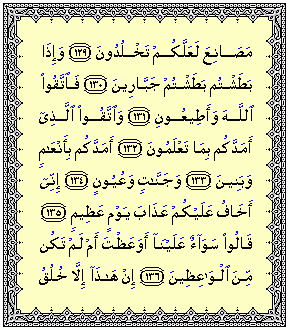 مَصَانِعَ لَعَلَّكُمْ تَخْلُدُونَ ١٢٩ وَإِذَا
بَطَشْتُم بَطَشْتُمْ جَبَّارِينَ ١٣٠ فَٱتَّقُوا۟
ٱللَّهَ وَأَطِيعُونِ ١٣١ وَٱتَّقُوا۟ ٱلَّذِىٓ
أَمَدَّكُم بِمَا تَعْلَمُونَ ١٣٢ أَمَدَّكُم بِأَنْعَٰمٍ
وَبَنِينَ ١٣٣ وَجَنَّٰتٍ وَعُيُونٍ ١٣٤ إِنِّىٓ
أَخَافُ عَلَيْكُمْ عَذَابَ يَوْمٍ عَظِيمٍ ١٣٥
قَالُوا۟ سَوَآءٌ عَلَيْنَآ أَوَعَظْتَ أَمْ لَمْ تَكُن
مِّنَ ٱلْوَٰعِظِينَ ١٣٦ إِنْ هَٰذَآ إِلَّا خُلُقُ